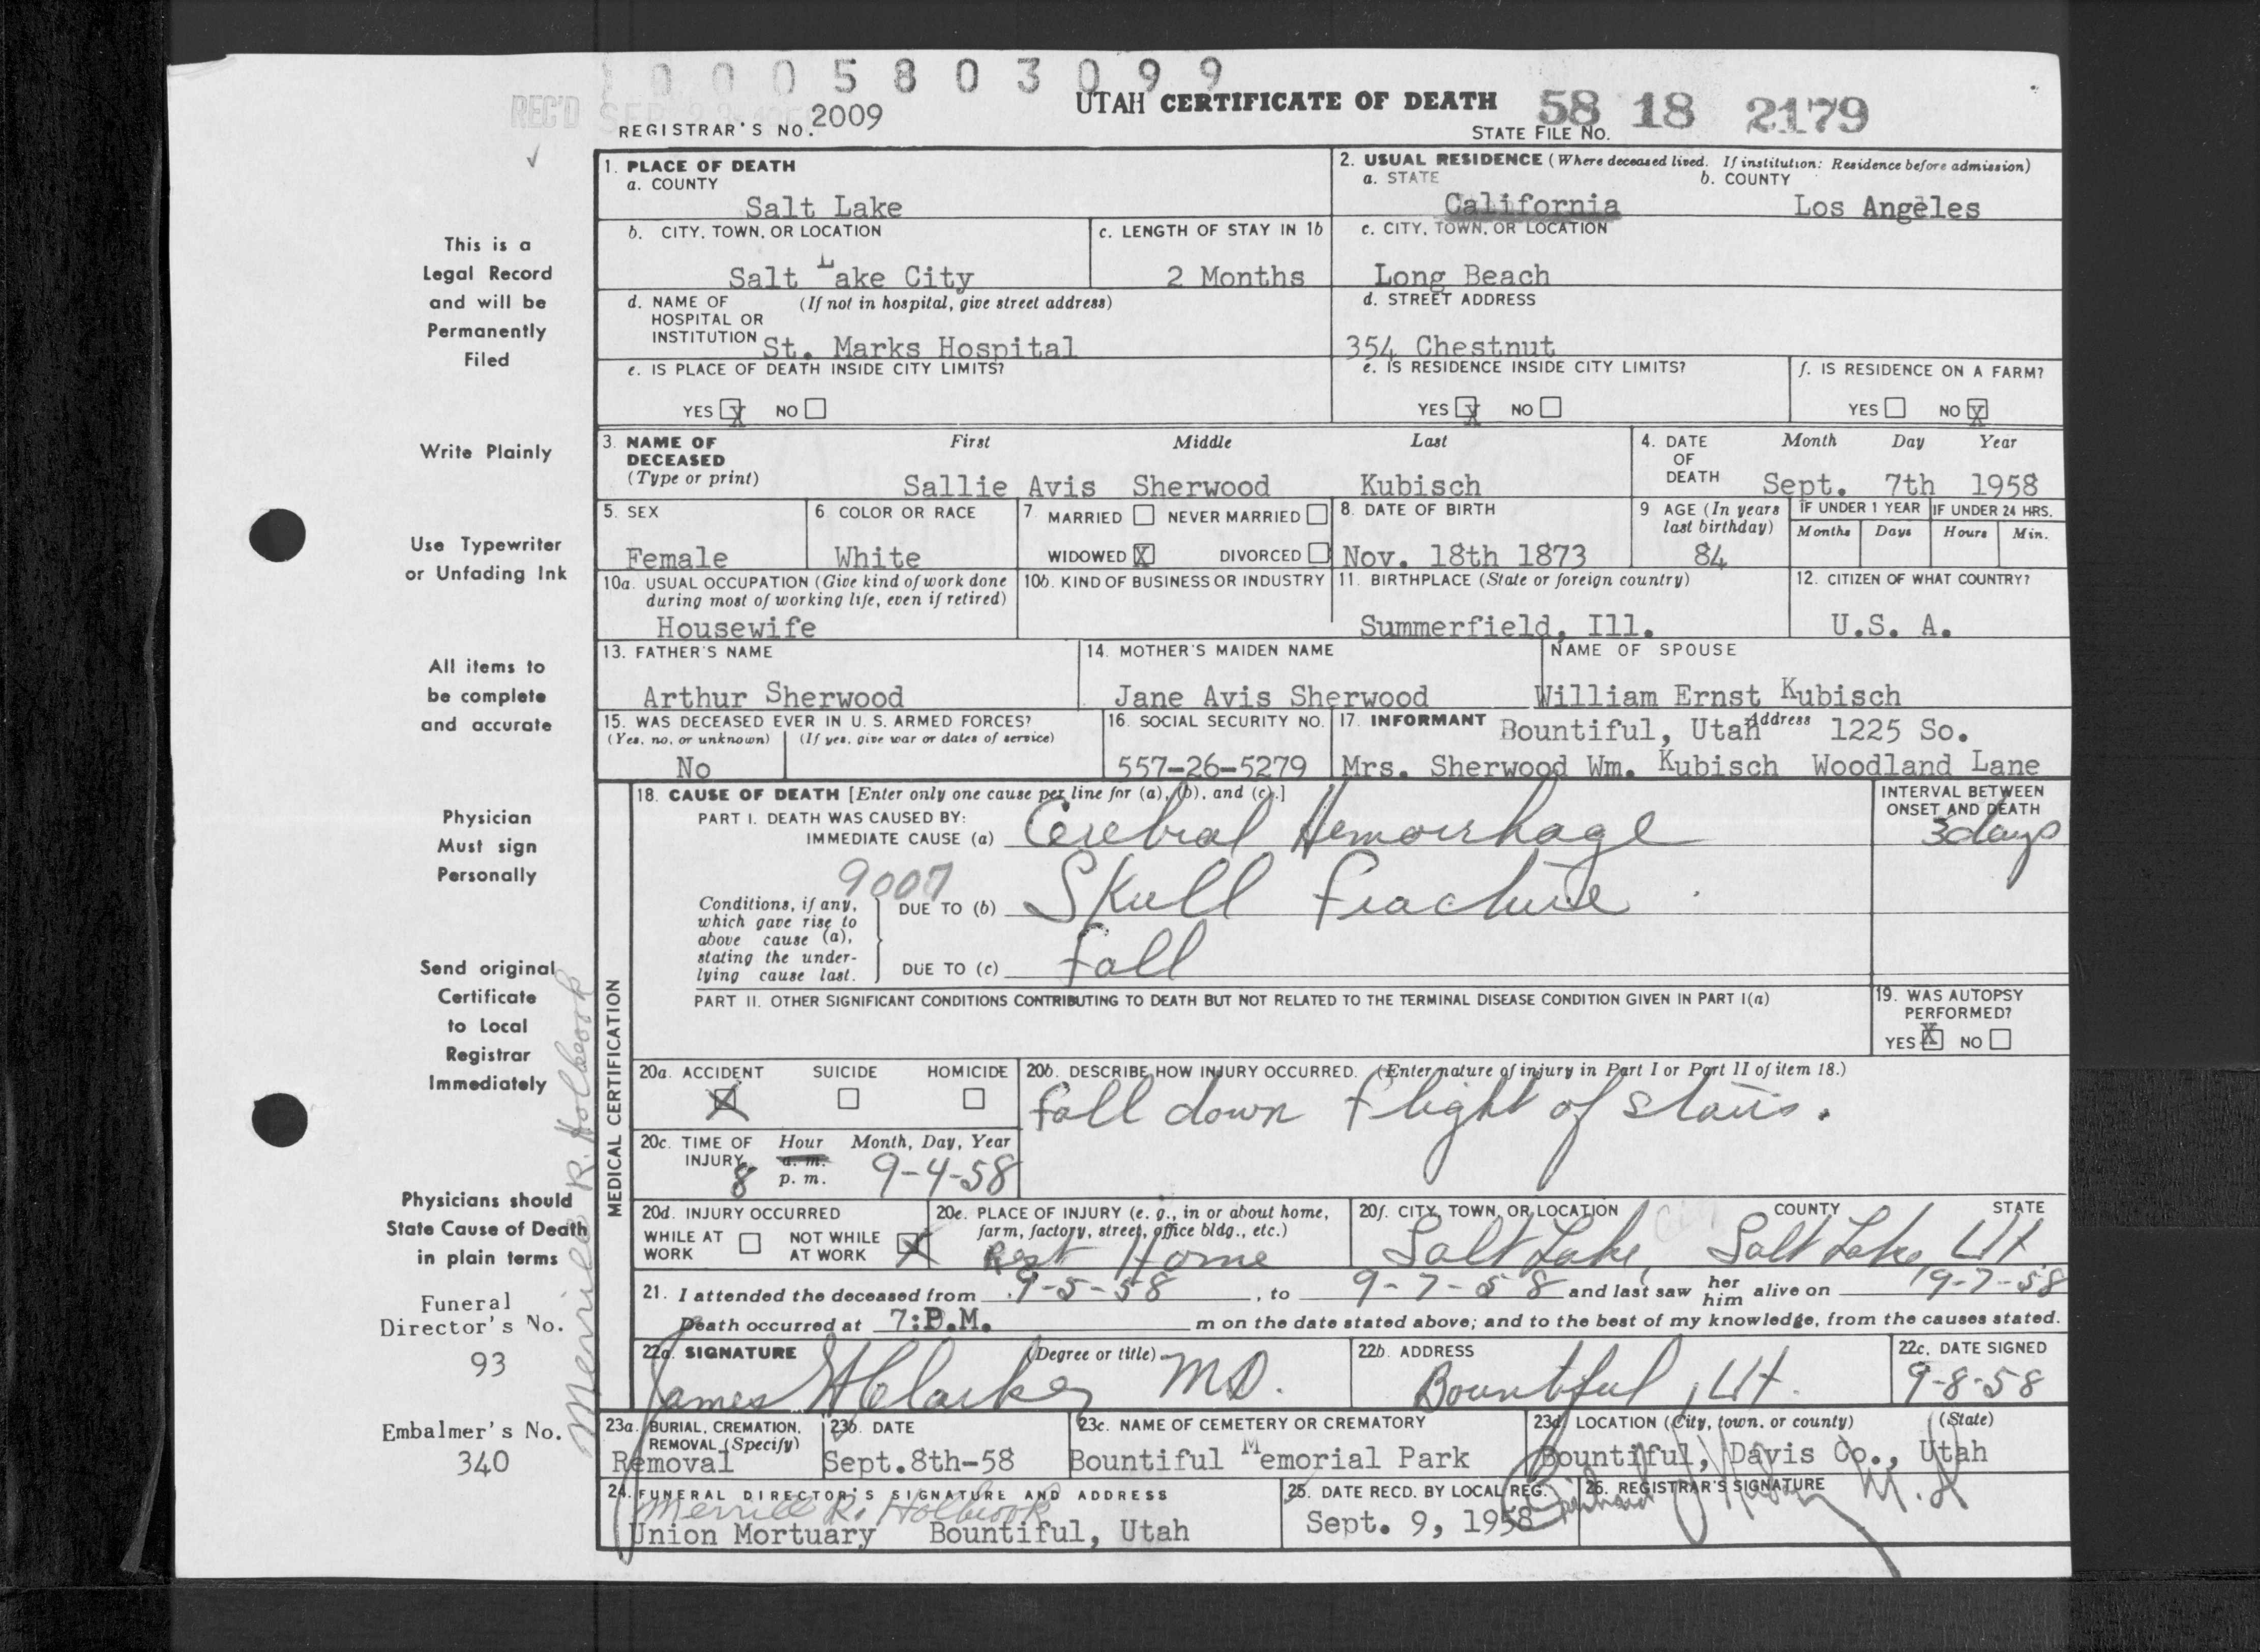 1 0 0 0 5 8 0 3 0 9 9
REC'D SEP
REGISTRAR'S NO. 2009
UTAH CERTIFICATE OF DEATH
STATE FILE NO. 58 18 2179
This is a
Legal Record
and will be
Permanently
Filed
Write Plainly
Use Typewriter
or Unfading Ink
All items to
be complete
and accurate
Physician
Must sign
Personally
Send original
Certificate
to Local
Registrar
Immediately
Physicians should
State Cause of Death
in plain terms
Funeral
Director's No.
93
Embalmer's No.
340
Merrill R. Holbrook
1. PLACE OF DEATH
a. COUNTY
Salt Lake
2. USUAL RESIDENCE (Where deceased lived. If institution: Residence before admission)
a. STATE b. COUNTY
California Los Angeles
b. CITY, TOWN, OR LOCATION
Salt Lake City
c. LENGTH OF STAY IN 1b
2 Months
c. CITY, TOWN, OR LOCATION
Long Beach
d. NAME OF (If not in hospital, give street address)
HOSPITAL OR
INSTITUTION St. Marks Hospital
d. STREET ADDRESS
354 Chestnut
e. IS PLACE OF DEATH INSIDE CITY LIMITS?
YES X NO
e. IS RESIDENCE INSIDE CITY LIMITS?
YES X NO
f. IS RESIDENCE ON A FARM?
YES NO X
3. NAME OF First Middle Last
DECEASED
(Type or print) Sallie Avis Sherwood Kubisch
4. DATE Month Day Year
OF
DEATH Sept. 7th 1958
5. SEX
Female
6 COLOR OR RACE
White
7 MARRIED NEVER MARRIED
WIDOWED X DIVORCED
8. DATE OF BIRTH
Nov. 18th 1873
9 AGE (In years
last birthday)
84
IF UNDER 1 YEAR IF UNDER 24 HRS.
Months Days Hours Min.
10a. USUAL OCCUPATION (Give kind of work done
during most of working life, even if retired)
Housewife
10b. KIND OF BUSINESS OR INDUSTRY
11. BIRTHPLACE (State or foreign country)
Summerfield, Ill.
12. CITIZEN OF WHAT COUNTRY?
U.S. A.
13. FATHER'S NAME
Arthur Sherwood
14. MOTHER'S MAIDEN NAME
Jane Avis Sherwood
NAME OF SPOUSE
William Ernst Kubisch
15. WAS DECEASED EVER IN U. S. ARMED FORCES?
(Yes, no, or unknown) (If yes, give war or dates of service)
No
16. SOCIAL SECURITY NO.
557-26-5279
17. INFORMANT Bountiful, Utah Address 1225 So.
Mrs. Sherwood Wm. Kubisch Woodland Lane
MEDICAL CERTIFICATION
18. CAUSE OF DEATH [Enter only one cause per line for (a), (b), and (c).]
PART I. DEATH WAS CAUSED BY:
IMMEDIATE CAUSE (a) Cerebral Hemorrhage
INTERVAL BETWEEN
ONSET AND DEATH
3 days
9007
Conditions, if any,
which gave rise to
above cause (a),
stating the under-
lying cause last.
DUE TO (b) Skull fracture
DUE TO (c) fall
PART II. OTHER SIGNIFICANT CONDITIONS CONTRIBUTING TO DEATH BUT NOT RELATED TO THE TERMINAL DISEASE CONDITION GIVEN IN PART I(a)
19. WAS AUTOPSY
PERFORMED?
YES X NO
20a. ACCIDENT SUICIDE HOMICIDE
X
20b. DESCRIBE HOW INJURY OCCURRED. (Enter nature of injury in Part I or Part II of item 18.)
fall down flight of stairs.
20c. TIME OF Hour Month, Day, Year
INJURY a. m.
8 p. m. 9-4-58
20d. INJURY OCCURRED
WHILE AT NOT WHILE
WORK AT WORK X
20e. PLACE OF INJURY (e. g., in or about home,
farm, factory, street, office bldg., etc.)
Rest Home
20f. CITY, TOWN, OR LOCATION COUNTY STATE
Salt Lake, Salt Lake, Ut
21. I attended the deceased from 9-5-58, to 9-7-58 and last saw her him alive on 9-7-58
Death occurred at 7:P.M. m on the date stated above; and to the best of my knowledge, from the causes stated.
22a. SIGNATURE (Degree or title)
James H Clarke MD.
22b. ADDRESS
Bountiful, Ut.
22c. DATE SIGNED
9-8-58
23a. BURIAL, CREMATION,
REMOVAL (Specify)
Removal
23b. DATE
Sept.8th-58
23c. NAME OF CEMETERY OR CREMATORY
Bountiful Memorial Park
23d. LOCATION (City, town, or county) (State)
Bountiful, Davis Co., Utah
24. FUNERAL DIRECTOR'S SIGNATURE AND ADDRESS
Merrill R. Holbrook
Union Mortuary Bountiful, Utah
25. DATE RECD. BY LOCAL REG.
Sept. 9, 1958
26. REGISTRAR'S SIGNATURE